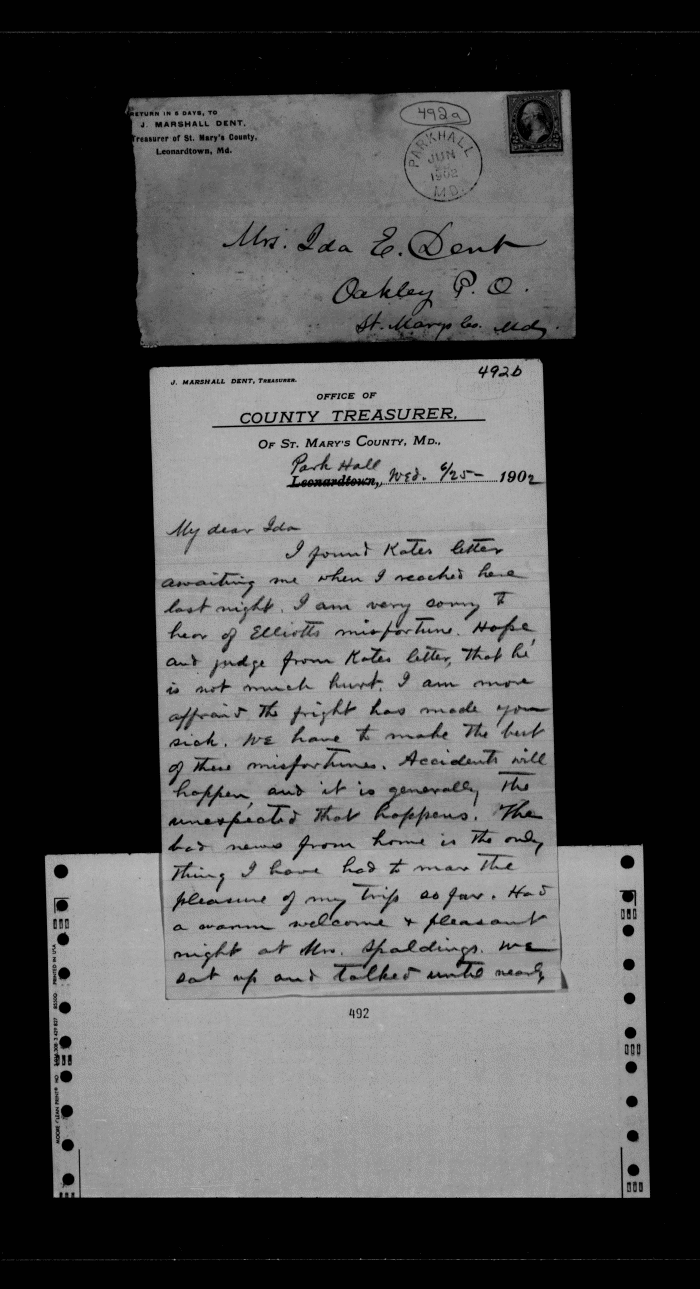 RETURN IN 5 DAYS, TO
J. MARSHALL DENT,
Treasurer of St. Mary's County,
Leonardtown, Md.
492a
PARKHALL
JUN
1902
MD.
Mrs. Ida E. Dent
Oakley P. O.
St. Marys Co. Md.
J. MARSHALL DENT, TREASURER.
492b
OFFICE OF
COUNTY TREASURER,
OF ST. MARY'S COUNTY, MD.,
Park Hall
Leonardtown, Wed. 6/25- 1902
My dear Ida
I found Kates letter
awaiting me when I reached here
last night. I am very sorry to
hear of Elliotts misfortune. Hope
and judge from Kates letter, that he
is not much hurt. I am more
affraid the fright has made you
sick. We have to make the best
of these misfortunes. Accidents will
happen, and it is generally the
unexpected that happens. The
bad news from home is the only
thing I have had to mar the
pleasure of my trip so far. Had
a warm welcome & pleasant
night at Mrs. Spaldings. We
sat up and talked until nearly
492
PRINTED IN USA
MOORE CLEAN PRINT